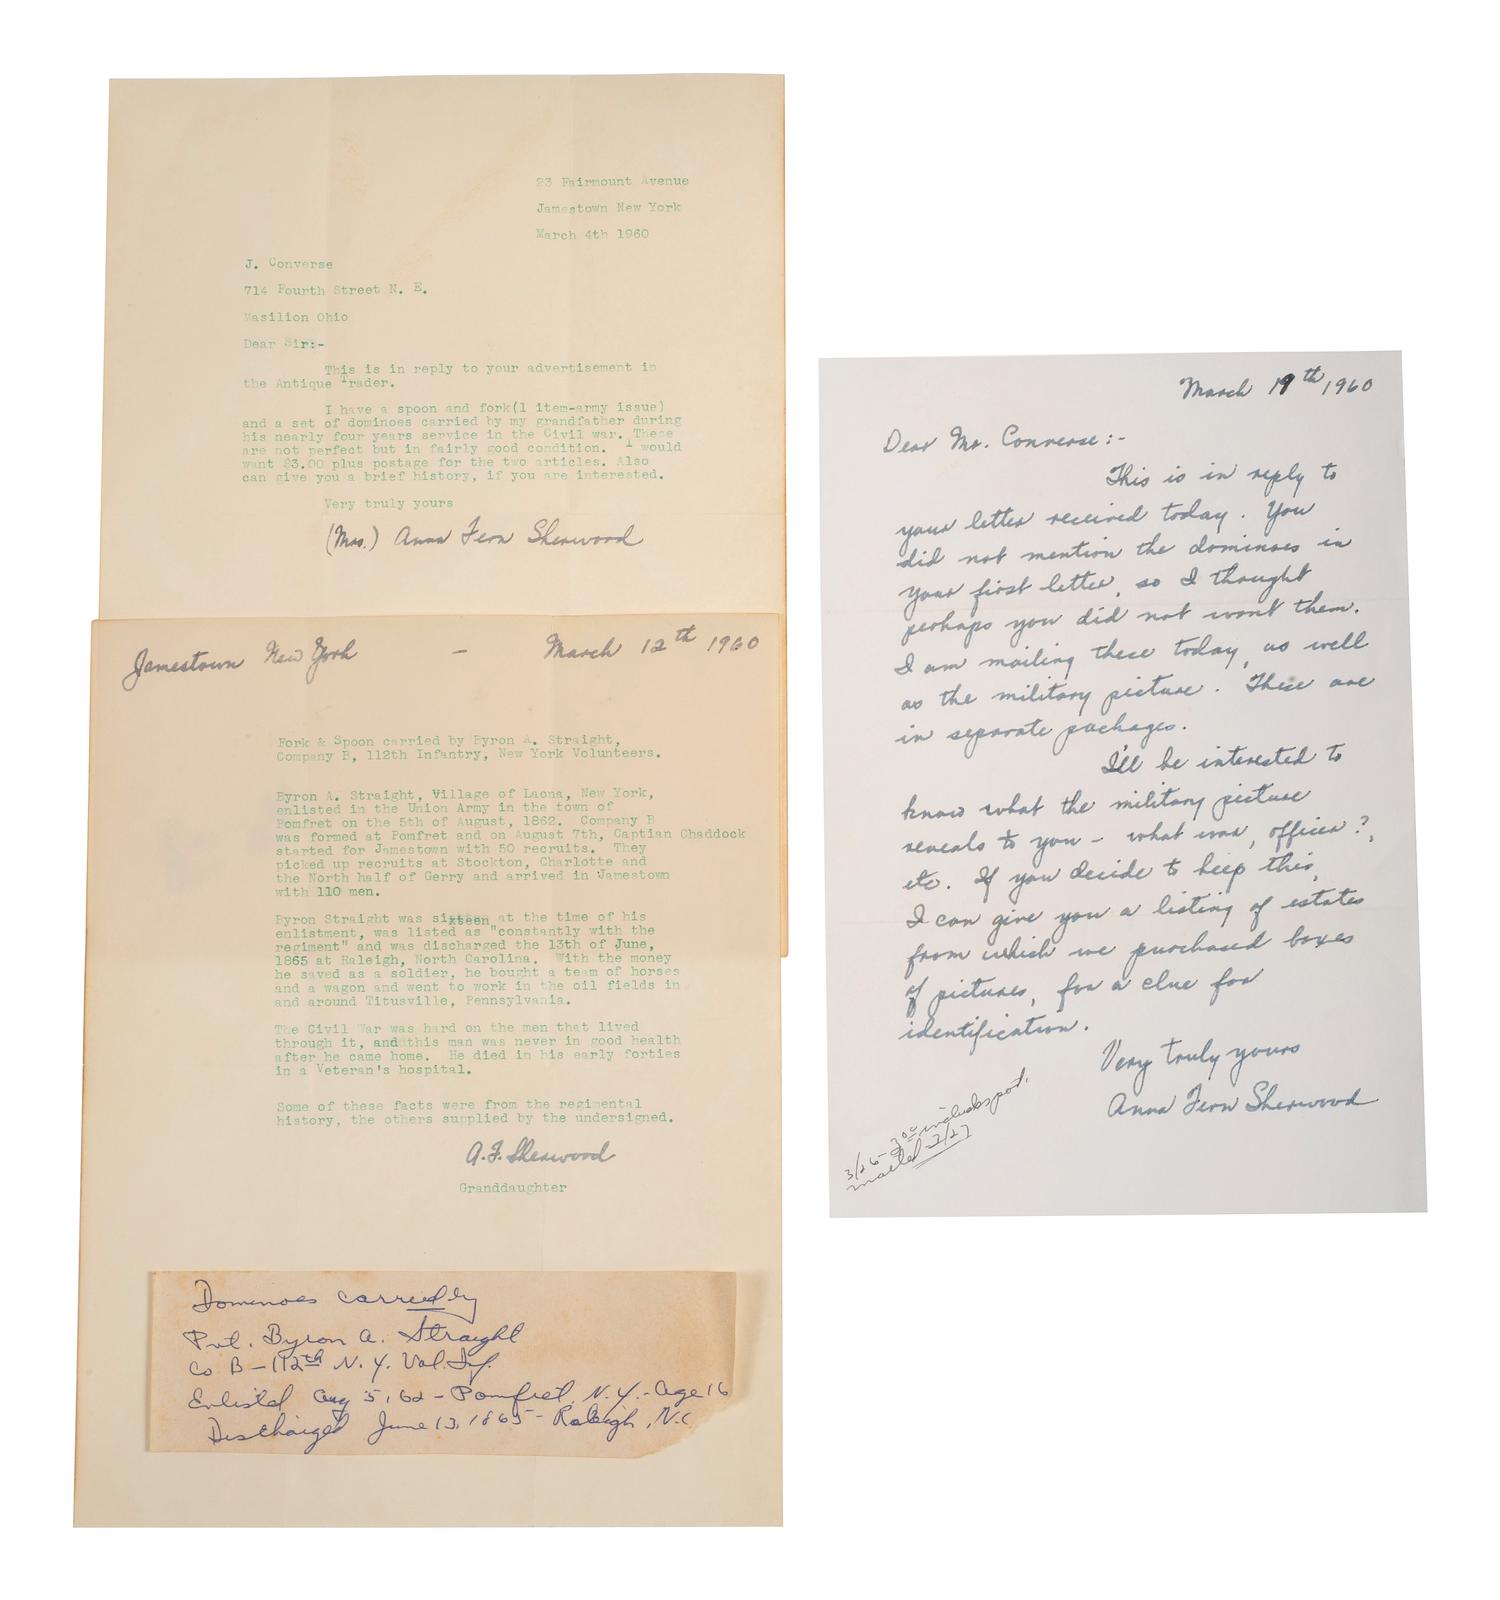 23 Fairmount Avenue
Jamestown New York
March 4th 1960
J. Converse
714 Fourth Street N. E.
Masilion Ohio
Dear Sir:-
This is in reply to your advertisement in
the Antique Trader.
I have a spoon and fork(1 item-army issue)
and a set of dominoes carried by my grandfather during
his nearly four years service in the Civil war. These
are not perfect but in fairly good condition. I would
want $3.00 plus postage for the two articles. Also
can give you a brief history, if you are interested.
Very truly yours
(Mrs.) Anna Fern Sherwood
Jamestown New York - March 12th 1960
Fork & Spoon carried by Byron A. Straight,
Company B, 112th Infantry, New York Volunteers.
Byron A. Straight, Village of Laona, New York,
enlisted in the Union Army in the town of
Pomfret on the 5th of August, 1862. Company B
was formed at Pomfret and on August 7th, Captian Chaddock
started for Jamestown with 50 recruits. They
picked up recruits at Stockton, Charlotte and
the North half of Gerry and arrived in Jamestown
with 110 men.
Byron Straight was sixteen at the time of his
enlistment, was listed as "constantly with the
regiment" and was discharged the 13th of June,
1865 at Raleigh, North Carolina. With the money
he saved as a soldier, he bought a team of horses
and a wagon and went to work in the oil fields in
and around Titusville, Pennsylvania.
The Civil War was hard on the men that lived
through it, and this man was never in good health
after he came home. He died in his early forties
in a Veteran's hospital.
Some of these facts were from the regimental
history, the others supplied by the undersigned.
A.F. Sherwood
Granddaughter
Dominoes carried by
Pvt. Byron A. Straight
Co B - 112th N.Y. Vol. Inf.
Enlisted Aug 5, 62 - Pomfret, N.Y. - Age 16
Discharged June 13, 1865 - Raleigh, N.C
March 19th 1960
Dear Mr. Converse:-
This is in reply to
your letter received today. You
did not mention the dominoes in
your first letter, so I thought
perhaps you did not want them.
I am mailing these today, as well
as the military picture. These are
in separate packages.
I'll be interested to
know what the military picture
reveals to you - what war, officer?,
etc. If you decide to keep this,
I can give you a listing of estates
from which we purchased boxes
of pictures, for a clue for
identification.
Very truly yours
Anna Fern Sherwood
3/26 - 3.00 includes post.
mailed 3/27